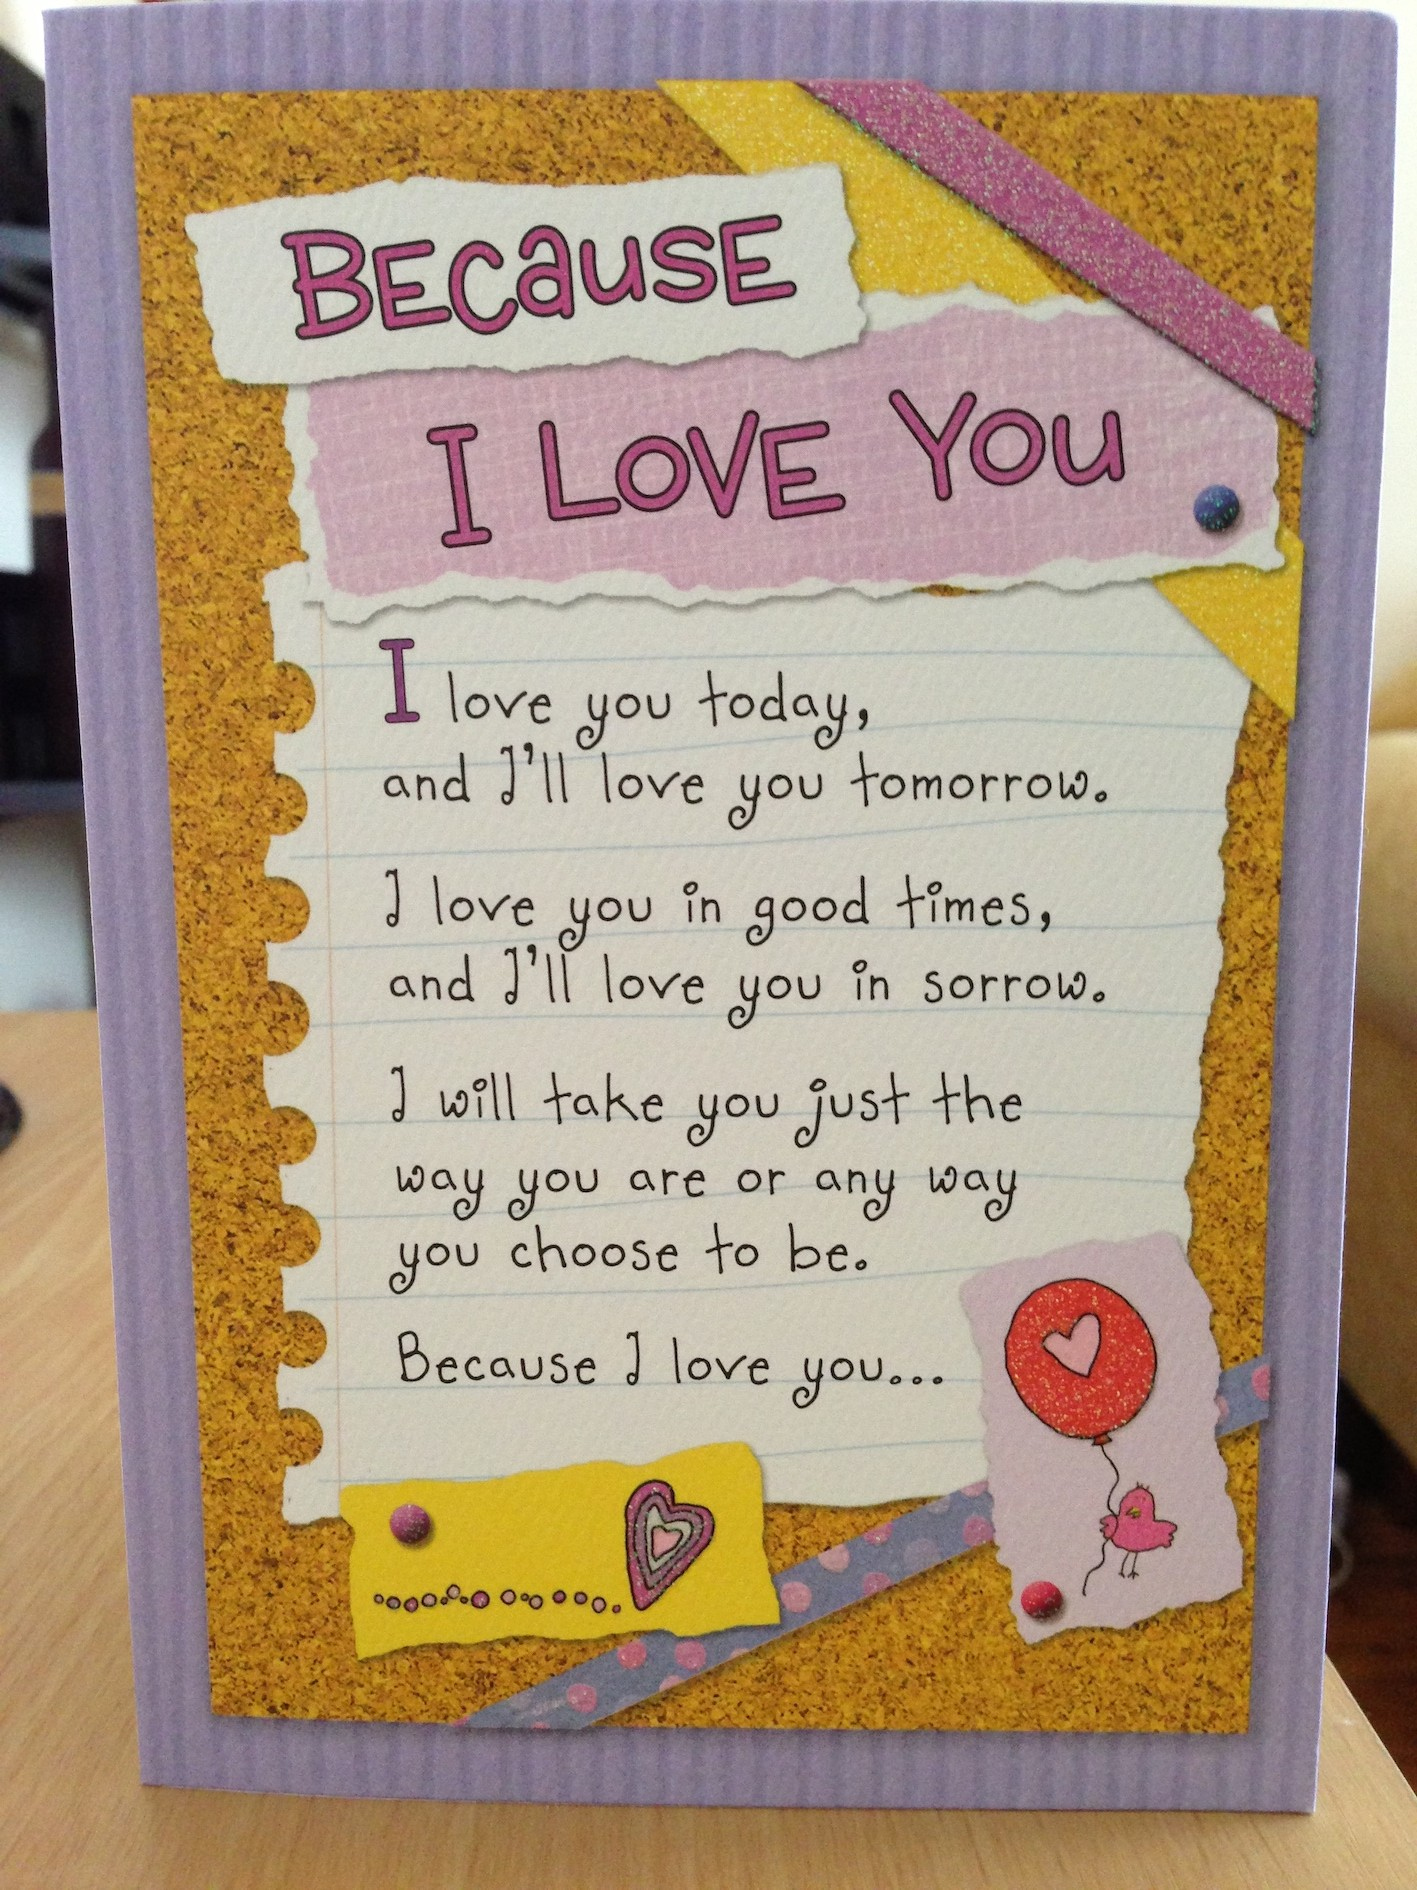 Because
I Love You
I love you today,
and I'll love you tomorrow.
I love you in good times,
and I'll love you in sorrow.
I will take you just the
way you are or any way
you choose to be.
Because I love you...